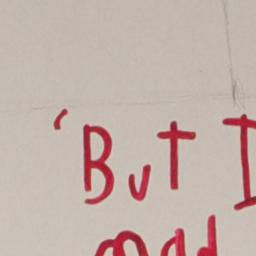 'But I